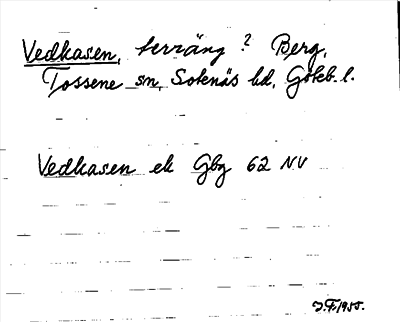 Vedkasen, terräng? Berg,
Tossene sn, Sotenäs hd, Göteb. l.
Vedkasen ek Gbg 62 NV
J.F. 1955.